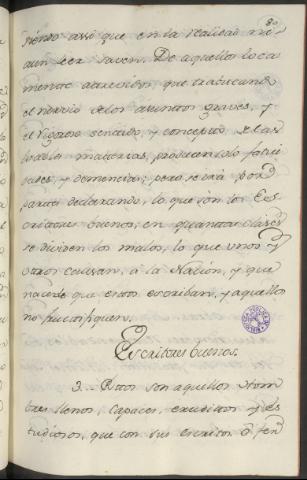 80
siendo assi que en la realidad ni
aun leer saven. De aquellos loca
mente atrevidos, que trabucando
el nervio de los asuntos graves, y
el vigoroso sentido, y concepto de las
materias, producen solo fatui
dades, y demencias; pero se irá por
partes declarando, lo que son los Es
critores buenos, en quantas clases
se dividen los malos, lo que unos y
otros causan, a la Nación, y que
hace que estos escriban, y aquellos
no fructifiquen.
Escritores buenos.
3. Estos son aquellos Hom
bres llenos, capaces, eruditos y es
tudiosos, que con sus escritos